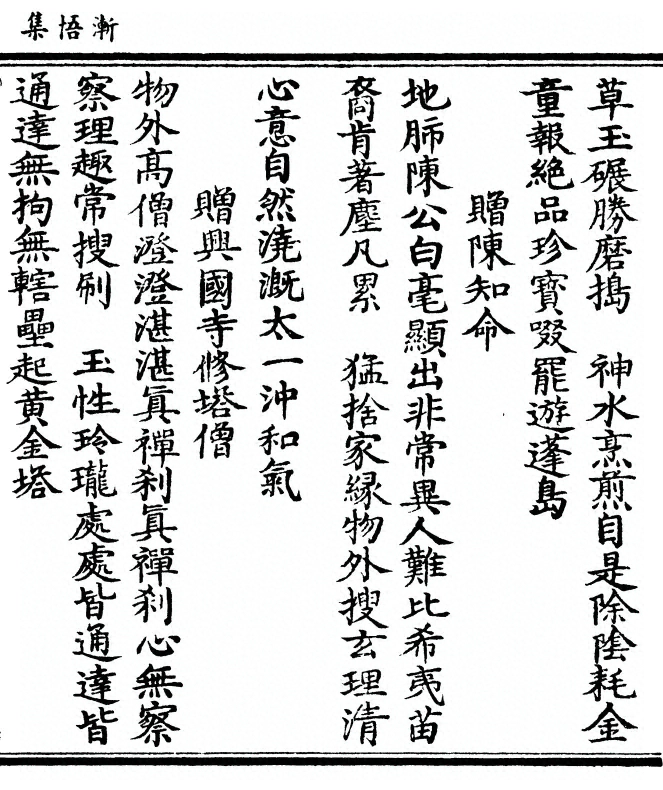 漸悟集
草玉碾勝磨搗　神水烹煎自是除陰耗金
童報絕品珍寶啜罷遊蓬島
贈陳知命
地肺陳公白毫顯出非常異人難比希夷苗
裔肯著塵凡累　猛捨家緣物外搜玄理清
心意自然澆溉太一沖和氣
贈興國寺修塔僧
物外高僧澄澄湛湛真禪剎真禪剎心無察
察理趣常搜刷　玉性玲瓏處處皆通達皆
通達無拘無轄壘起黃金塔